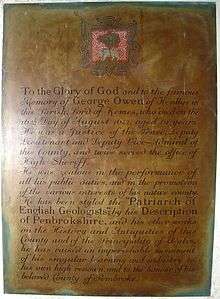 To the Glory of God and to the famous
Memory of George Owen of Henllys in
this Parish, Lord of Kemes, who died on the
day of August 1613, aged 61 years.
He was a Justice of the Peace, Deputy
Lieutenant and Deputy Vice-Admiral of
this County, and twice served the office of
High Sheriff.
He was zealous in the performance of
all his public duties, and in the promotion
of the various interests of his native county.
He has been styled the "Patriarch of
English Geologists"; by his Description
of Penbrokshire, and his other works
on the History and Antiquities of this
County and of the Principality of Wales,
he has raised an imperishable monument
of his singular learning and industry, to
his own high renown and to the honour of his
beloved County of Pembroke.